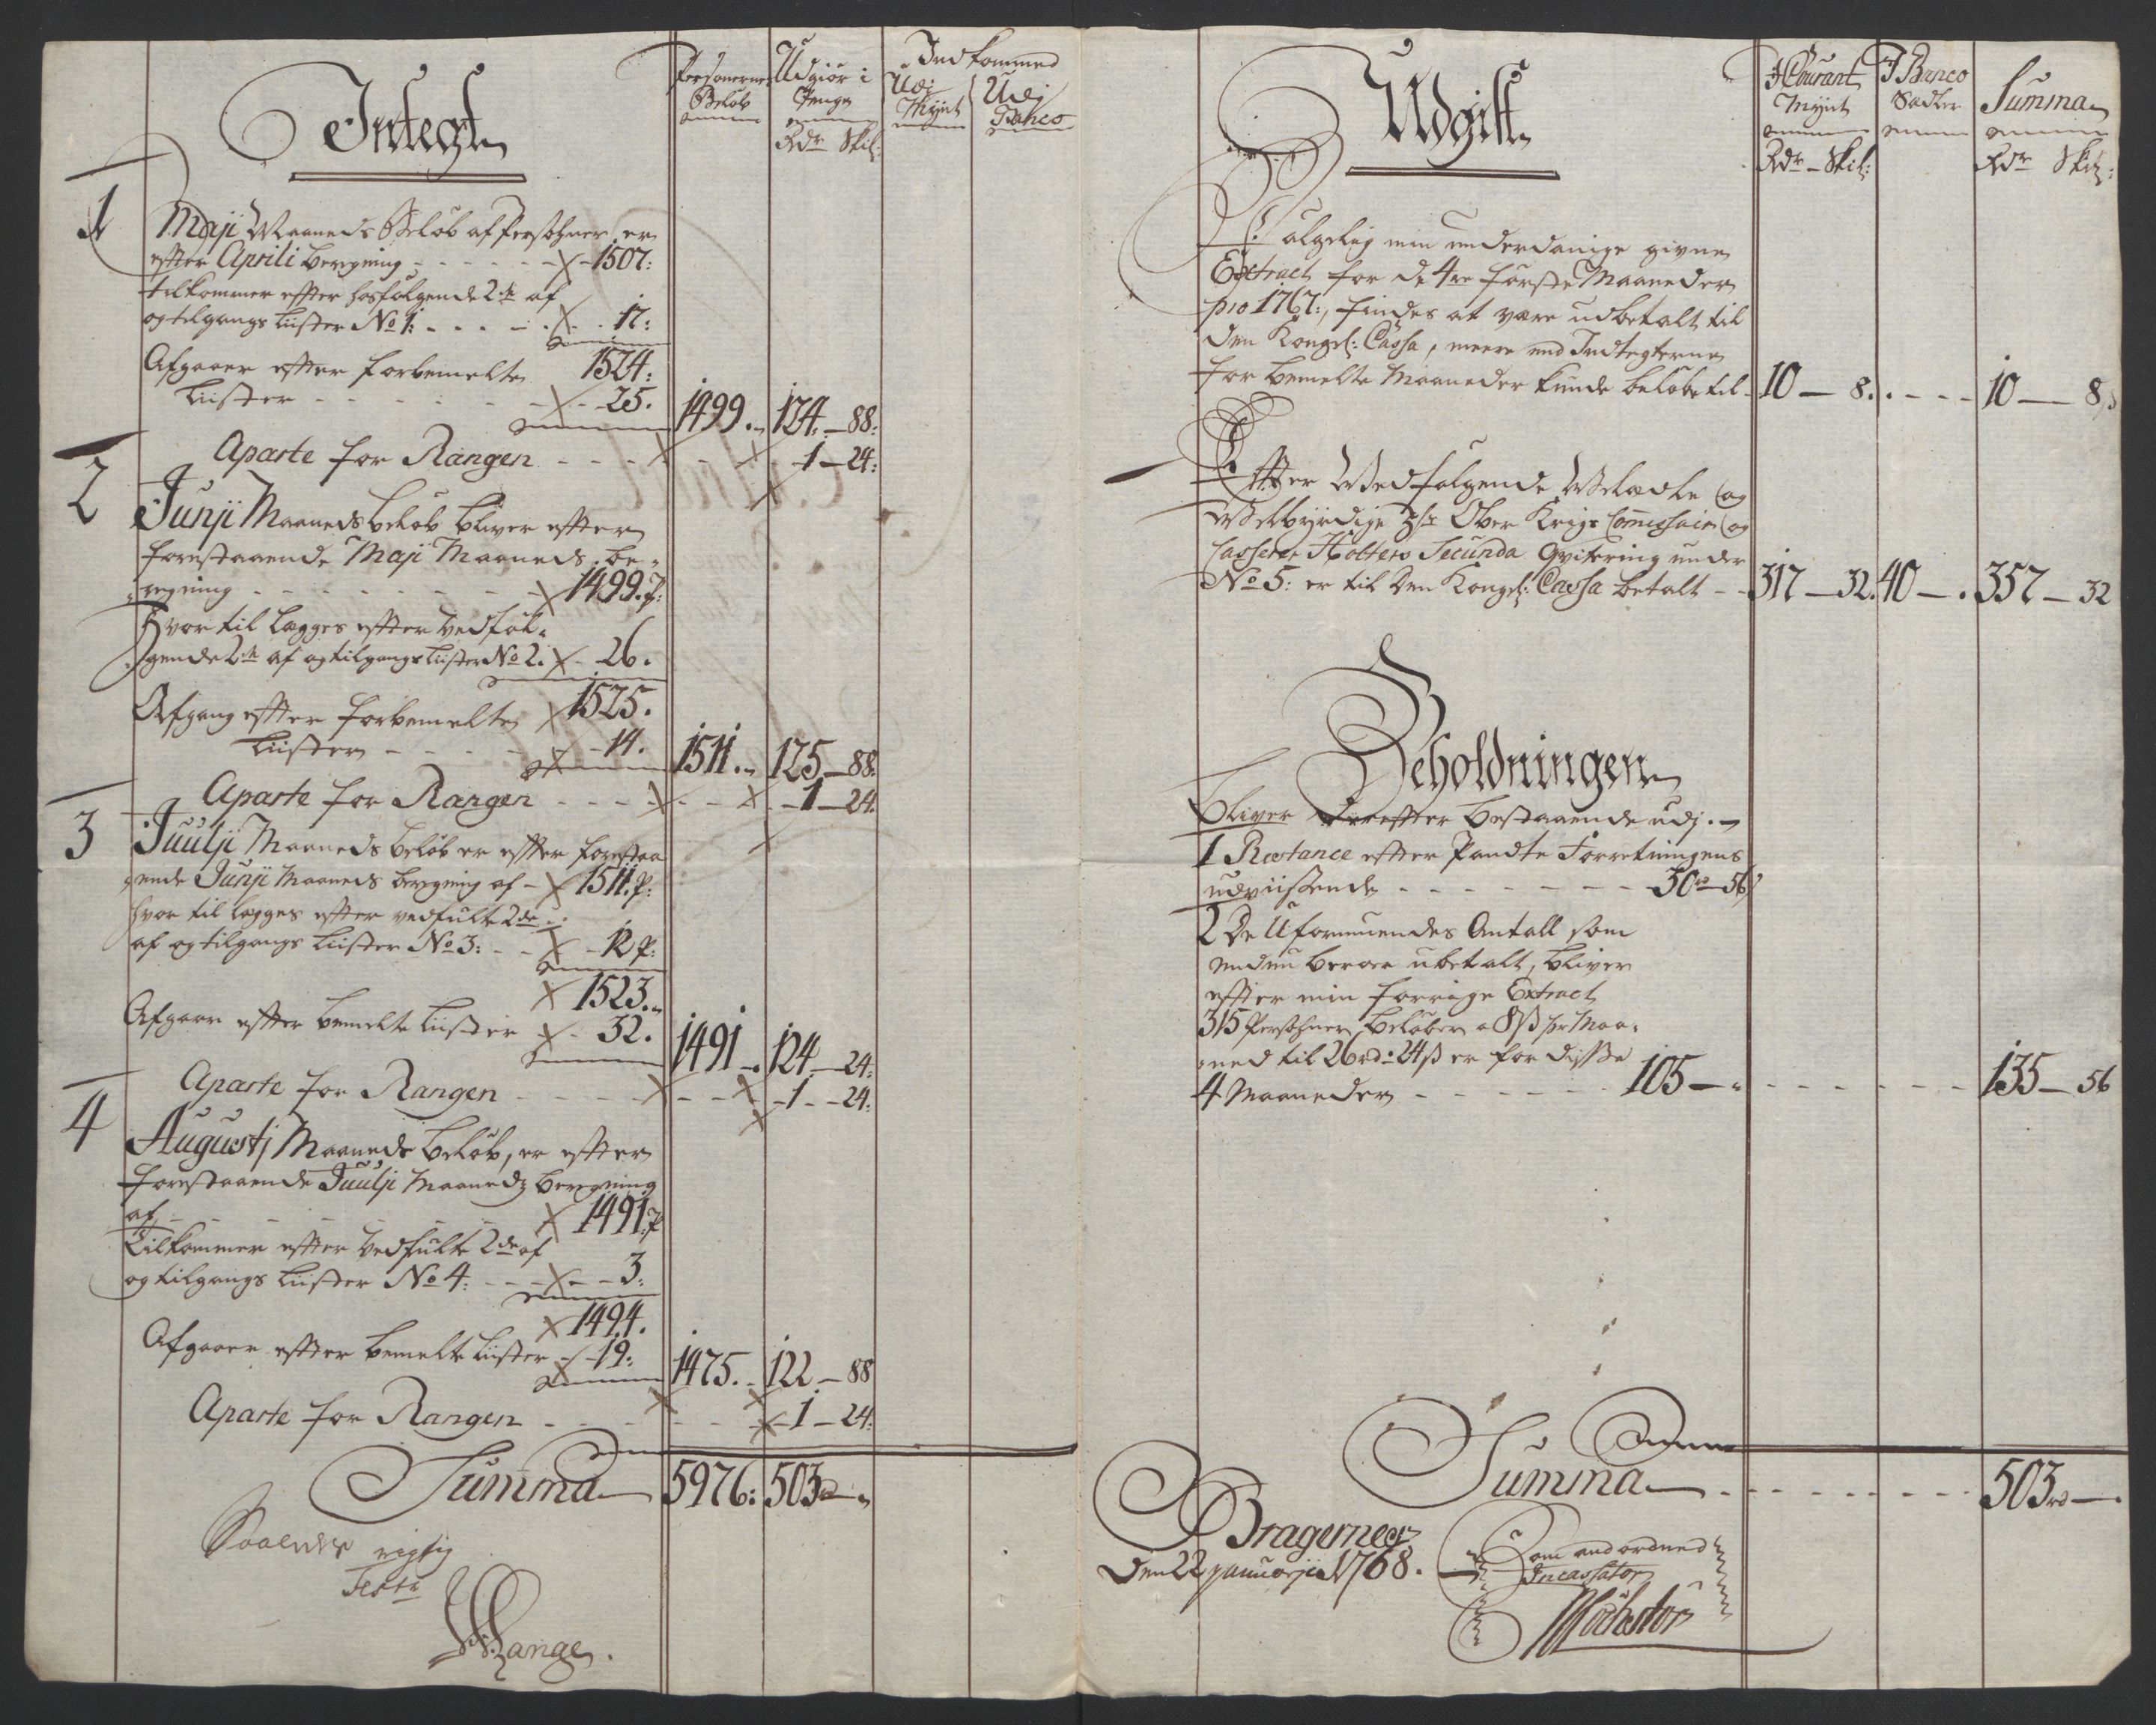 Indtegt
Personernes Beløb
Udgiør i Penge
Rdr Skil:
Indkommed
Udj Mynt
Udj Banco
1
Maji Maaneds Beløb af Persohner er
efter Aprili beregning - - - 1507:
tilkommer efter hosfølgende 2de af
og tilgangs Liister No 1: - - - 17:
Afgaaer efter forbemelte 1524:
Liister - - - 25. 1499. 124.-88:
Aparte for Rangen - - - 1-24:
2
Junji Maaneds beløb bliver efter
forestaaende Maji Maaneds be-
regning - - - 1499.P:
Hvortil legges efter vedføl-
gende 2de af og tilgangs Liister No 2. - 26.
1525.
Afgang efter forbemelte
Liister - - - 14. 1511. 125-88.
Aparte for Rangen - - - 1-24.
3
Juulji Maaneds beløb er efter forestaa
ende Junji Maaneds beregning af - 1511.P:
hvor til legges efter vedfulte 2de
af og tilgangs Liister No 3: - - 12 P:
1523.
Afgaar efter bemelte Liister - 32. 1491 - 124-24:
Aparte for Rangen - - - 1-24:
4
Augustj Maaneds beløb, er efter
forestaaende Juulji Maaneds beregning
af - - - 1491.P
Tilkommer efter vedfulte 2de af
og tilgangs Liister No 4: - - 3:
1494.
Afgaaer efter bemelte Liister - 19: 1475. 122.-88
Aparte for Rangen - - - 1-24:
Summa 5976: 503rd-"
Saaledes rigtig
Test:
Lange.
Udgift
I Courant Mynt
Rdr - Skil:
I Banco Sedler
Summa
Rdr Skil:
Følgelig min underdanige givne
Extract for de 4re første Maaneder
pro 1767:, findes at være udbetalt til
den Kongel: Cassa, meere end Indtegterne
for bemelte Maaneder kunde beløbe til - 10-8. - - - 10-8
Efter Vedfølgende Velædle og
Velbyrdige Hr Ober Krigs Commissair og
Casserer Holters Secunda Qvitering under
No 5: er til den Kongel: Cassa betalt - - 317-32. 40-. 357-32
Beholdningen
Bliver derefter bestaaende udj.
1 Restance efter Pandte Forretningens
udviisende - - - 30rd-56
2 De Uformuendes Antall som
endnu beroer ubetalt, bliver
efter min forrige Extract
315 Persohner, beløber a 8ß pr Maa-
ned til 26rd: 24ß er for disse
4 Maaneder - - - 105-" - - - 135-56
Summa - - - 503rd-.
Bragernes
Den 22 januarji 1768.
Som anordned
Incassator